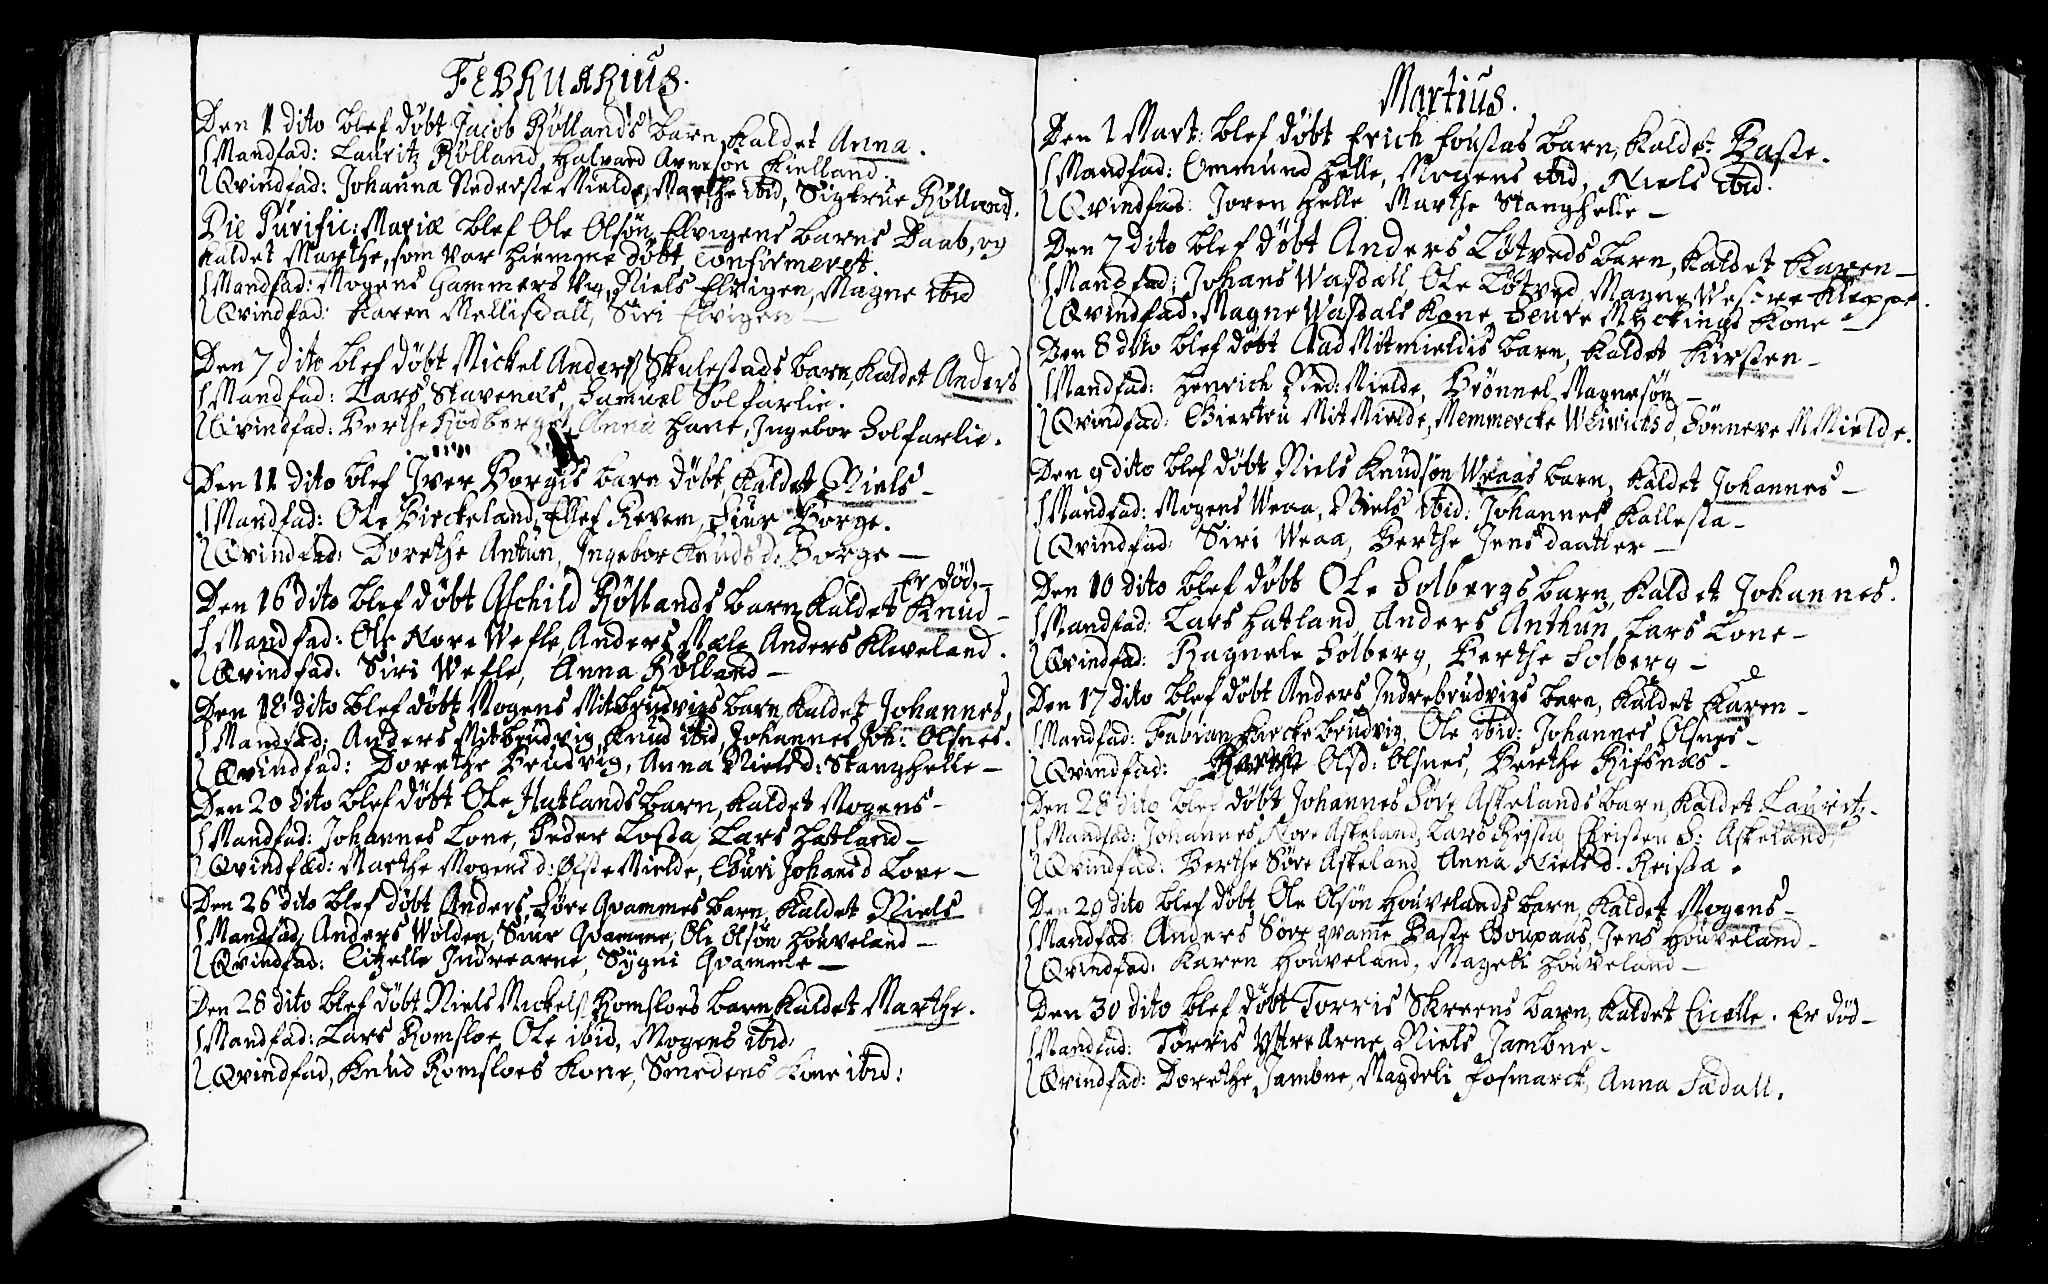 FEBRUARIUS.
Den 1 dito blef døbt Jacob Røllands barn, kaldet Anna.
Mandfad: Lauritz Rølland, Halvard Arnesøn Kielland.
Qvindfad: Johanna Nederste Mielde, Marthe ibid, Sigtrue Rølland.
Die Purific: Mariæ blef Ole Olsøn Elvigens barns Daab, og
kaldet Marthe, som var hiemme døbt, Confirmeret.
Mandfad: Mogens Hammersvig, Niels Elvigen, Magne ibid
Qvindfad: Karen Mellisdall, Siri Elvigen —
Den 7 dito blef døbt Mickel Anders Skulestads barn, kaldet Anders
Mandfad: Lars Stavenes, Samuel Solfarlie.
Qvindfad: Berthe Rødberget, Anna Hane, Ingebor Solfarlie.
Den 11 dito blef Iver Borges barn døbt, kaldet Niels —
Mandfad: Ole Birckeland, Ellef Revem, Siur Borge.
Qvindfad: Dorethe Antun, Ingebor Knudsd: Borge —
Er død —
Den 16 dito blef døbt Aschild Røllands barn kaldet Knud —
Mandfad: Ole Nore Wefle, Anders Mæle, Anders Kleveland.
Qvindfad: Siri Wefle, Anna Rølland —
Den 18 dito blef døbt Mogens Mitbrudvigs barn kaldet Johannes,
Mandfad: Anders Mitbrudvig, Knud ibid, Johannes Joh: Olsnes.
Qvindfad: Dorethe Brudvig, Anna Nielsd: Stanghelle —
Den 20 dito blef døbt Ole Hatlands barn, kaldet Mogens —
Mandfad: Johannes Lone, Peder Losta, Lars Hatland —
Qvindfad: Marthe Mogensd: Øfste Mielde, Guri Johansd Lone —
Den 26 dito blef døbt Anders Søre Qvammes barn, kaldet Niels
Mandfad, Anders Wolden, Siur Qvamme, Ole Olsøn Houveland —
Qvindfad: Citzelle Indrearne, Sÿgni Qvamme —
Den 28 dito blef døbt Niels Mickels Romsloes barn kaldet Marthe.
Mandfad: Lars Romsloe, Ole ibid, Mogens ibid:
Qvindfad, Knud Romsloes Kone, Smedens Kone ibid:
Martius.
Den 1 Mart: blef døbt Erich Foustas barn, kaldet Baste.
Mandfad: Ommund Helle, Mogens ibid, Niels ibid.
Qvindfad: Joren Helle, Marthe Stanghelle —
Den 7 dito blef døbt Anders Løtveds barn, kaldet Karen —
Mandfad: Johans Wasdall, Ole Løtved, Magne Westre Kleppe.
Qvindfad: Magne Wasdals Kone, Siure Mÿckings Kone —
Den 8 dito blef døbt Aad Mitmieldis barn, kaldet Kirsten —
Mandfad: Henrich Ned: Mielde, Brønnel Magnesøn —
Qvindfad: Giertru Mit Mielde, Memmercke, Sønneve M Mielde.
Den 9 dito blef døbt Niels Knudsøn Weaas barn, kaldet Johannes —
Mandfad: Mogens Weaa, Niels ibid: Johannes Kallesta —
Qvindfad: Siri Weaa, Berthe Jensdaatter —
Den 10 dito blef døbt Ole Solbergs barn, kaldet Johannes.
Mandfad: Lars Hatland, Anders Anthun, Lars Lone —
Qvindfad: Ragnele Solberg, Berthe Solberg —
Den 17 dito blef døbt Anders Indrebrudvigs barn, kaldet Karen —
Mandfad: Fabian Hæckebrudvig, Ole ibid: Johannes Olsnes —
Qvindfad: Marthe Olsd: Olsnes, Berthe Rifsnæs —
Den 28 dito blef døbt Johannes Søre Askelands barn, kaldet Lauritz —
Mandfad: Johannes Nore Askeland, Lars Reista, Christen S: Askeland,
Qvindfad: Berthe Søre Askeland, Anna Nielsd: Reista.
Den 29 dito blef døbt Ole Olsøn Houvelands barn, kaldet Mogens —
Mandfad: Anders Søre qvamme, Baste Goupaas, Jens Houveland —
Qvindfad: Karen Houveland, Mageti Houveland —
Den 30 dito blef døbt Torris Skreens barn, kaldet Cicelle. Er død —
Mandfad: Torris Ytre Arne, Niels Jambne —
Qvindfad: Dorethe Jambne, Magdeli Fosmarck, Anna Sædall.